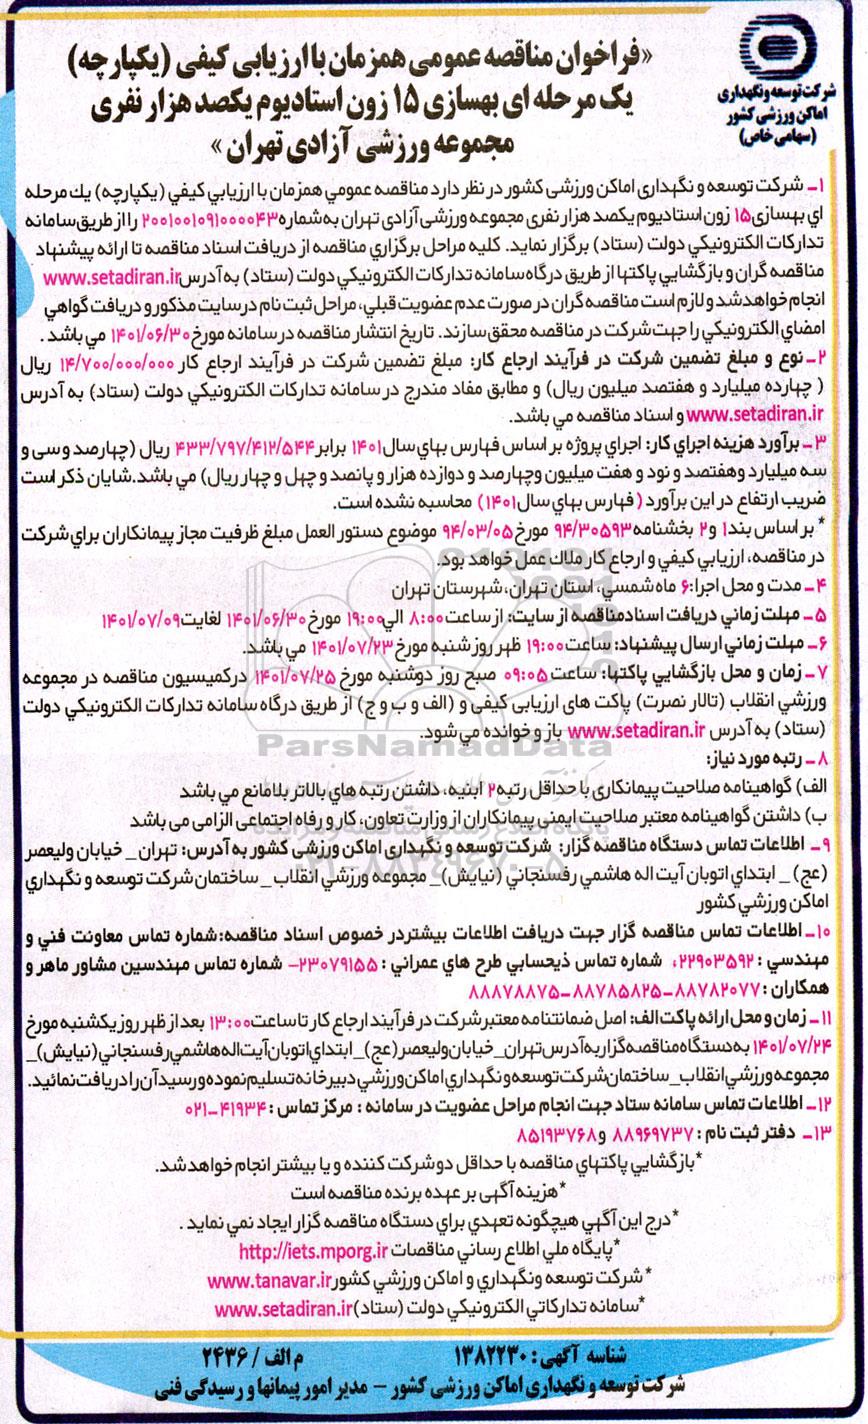 شرکت توسعه و نگهداری
اماکن ورزشی کشور
(سهامی خاص)
«فراخوان مناقصه عمومی همزمان با ارزیابی کیفی (یکپارچه)
یک مرحله ای بهسازی ۱۵ زون استادیوم یکصد هزار نفری
مجموعه ورزشی آزادی تهران»
۱ـ شرکت توسعه و نگهداری اماکن ورزشی کشور در نظر دارد مناقصه عمومي همزمان با ارزيابي كيفي (يكپارچه) يك مرحله
اي بهسازي ۱۵ زون استاديوم يكصد هزار نفري مجموعه ورزشی آزادی تهران به شماره ۲۰۰۱۰۰۱۰۹۱۰۰۰۰۴۳ را از طريق سامانه
تداركات الكترونيكي دولت (ستاد) برگزار نمايد. كليه مراحل برگزاري مناقصه از دريافت اسناد مناقصه تا ارائه پيشنهاد
مناقصه گران و بازگشايي پاكتها از طريق درگاه سامانه تداركات الكترونيكي دولت (ستاد) به آدرس www.setadiran.ir
انجام خواهد شد و لازم است مناقصه گران در صورت عدم عضويت قبلي، مراحل ثبت نام در سايت مذكور و دريافت گواهي
امضاي الكترونيكي را جهت شركت در مناقصه محقق سازند. تاريخ انتشار مناقصه در سامانه مورخ ۱۴۰۱/۰۶/۳۰ مي باشد .
۲ـ نوع و مبلغ تضمين شركت در فرآيند ارجاع كار: مبلغ تضمين شركت در فرآيند ارجاع كار ۱۴/۷۰۰/۰۰۰/۰۰۰ ريال
( چهارده ميليارد و هفتصد ميليون ريال) و مطابق مفاد مندرج در سامانه تداركات الكترونيكي دولت (ستاد) به آدرس
www.setadiran.ir و اسناد مناقصه مي باشد.
۳ـ برآورد هزينه اجراي كار: اجراي پروژه بر اساس فهارس بهاي سال ۱۴۰۱ برابر ۴۳۳/۷۹۷/۴۱۲/۵۴۴ ريال (چهارصد و سی و
سه ميليارد و هفتصد و نود و هفت ميليون و چهارصد و دوازده هزار و پانصد و چهل و چهار ريال) مي باشد.شايان ذكر است
ضريب ارتفاع در اين برآورد ( فهارس بهاي سال ۱۴۰۱) محاسبه نشده است.
* بر اساس بند ۱ و ۲ بخشنامه ۹۴/۳۰۵۹۳ مورخ ۹۴/۰۳/۰۵ موضوع دستور العمل مبلغ ظرفيت مجاز پيمانكاران براي شركت
در مناقصه، ارزيابي كيفي و ارجاع كار ملاك عمل خواهد بود.
۴ـ مدت و محل اجرا: ۶ ماه شمسي، استان تهران،شهرستان تهران
۵ـ مهلت زماني دريافت اسناد مناقصه از سايت: از ساعت ۸:۰۰ الي ۱۹:۰۰ مورخ ۱۴۰۱/۰۶/۳۰ لغايت ۱۴۰۱/۰۷/۰۹
۶ـ مهلت زماني ارسال پيشنهاد: ساعت ۱۹:۰۰ ظهر روز شنبه مورخ ۱۴۰۱/۰۷/۲۳ مي باشد.
۷ـ زمان و محل بازگشايي پاكتها: ساعت ۰۹:۰۵ صبح روز دوشنبه مورخ ۱۴۰۱/۰۷/۲۵ در كميسيون مناقصه در مجموعه
ورزشي انقلاب (تالار نصرت) پاكت های ارزيابی كيفی و (الف و ب و ج) از طريق درگاه سامانه تداركات الكترونيكي دولت
(ستاد) به آدرس www.setadiran.ir باز و خوانده مي شود.
۸ـ رتبه مورد نياز:
الف) گواهينامه صلاحيت پيمانكاری با حداقل رتبه ۲ ابنيه، داشتن رتبه هاي بالاتر بلامانع مي باشد
ب) داشتن گواهينامه معتبر صلاحيت ايمنی پيمانكاران از وزارت تعاون، كار و رفاه اجتماعی الزامی می باشد
۹ـ اطلاعات تماس دستگاه مناقصه گزار: شركت توسعه و نگهداری اماكن ورزشی كشور به آدرس: تهران_ خيابان وليعصر
(عج) _ ابتداي اتوبان آيت اله هاشمي رفسنجاني (نيايش)_ مجموعه ورزشي انقلاب_ ساختمان شركت توسعه و نگهداري
اماكن ورزشي كشور
۱۰ـ اطلاعات تماس مناقصه گزار جهت دريافت اطلاعات بيشتر در خصوص اسناد مناقصه:شماره تماس معاونت فني و
مهندسي : ۲۲۹۰۳۵۹۲، شماره تماس ذيحسابي طرح هاي عمراني : ۲۳۰۷۹۱۵۵- شماره تماس مهندسين مشاور ماهر و
همكاران : ۸۸۷۸۲۰۷۷-۸۸۷۸۵۸۲۵-۸۸۸۷۸۸۷۵
۱۱ـ زمان و محل ارائه پاكت الف: اصل ضمانتنامه معتبر شركت در فرآيند ارجاع كار تا ساعت ۱۳:۰۰ بعد از ظهر روز يكشنبه مورخ
۱۴۰۱/۰۷/۲۴ به دستگاه مناقصه گزار به آدرس تهران_ خيابان وليعصر (عج)_ ابتداي اتوبان آيت اله هاشمي رفسنجاني (نيايش)_
مجموعه ورزشي انقلاب_ ساختمان شركت توسعه و نگهداري اماكن ورزشي دبيرخانه تسليم نموده و رسيد آن را دريافت نمائيد.
۱۲ـ اطلاعات تماس سامانه ستاد جهت انجام مراحل عضويت در سامانه : مركز تماس : ۴۱۹۳۴-۰۲۱
۱۳ـ دفتر ثبت نام : ۸۸۹۶۹۷۳۷ و ۸۵۱۹۳۷۶۸
*بازگشايي پاكتهاي مناقصه با حداقل دو شركت كننده و يا بيشتر انجام خواهد شد.
*هزينه آگهی بر عهده برنده مناقصه است
*درج اين آگهي هيچگونه تعهدي براي دستگاه مناقصه گزار ايجاد نمي نمايد .
*پايگاه ملي اطلاع رساني مناقصات http://iets.mporg.ir
* شركت توسعه ونگهداري و اماكن ورزشي كشور www.tanavar.ir
*سامانه تداركاتي الكترونيكي دولت (ستاد) www.setadiran.ir
شناسه آگهی : ۱۳۸۲۲۳۰ م الف / ۲۴۳۶
شرکت توسعه و نگهداری اماکن ورزشی کشور - مدیر امور پیمانها و رسیدگی فنی
ParsNamadData